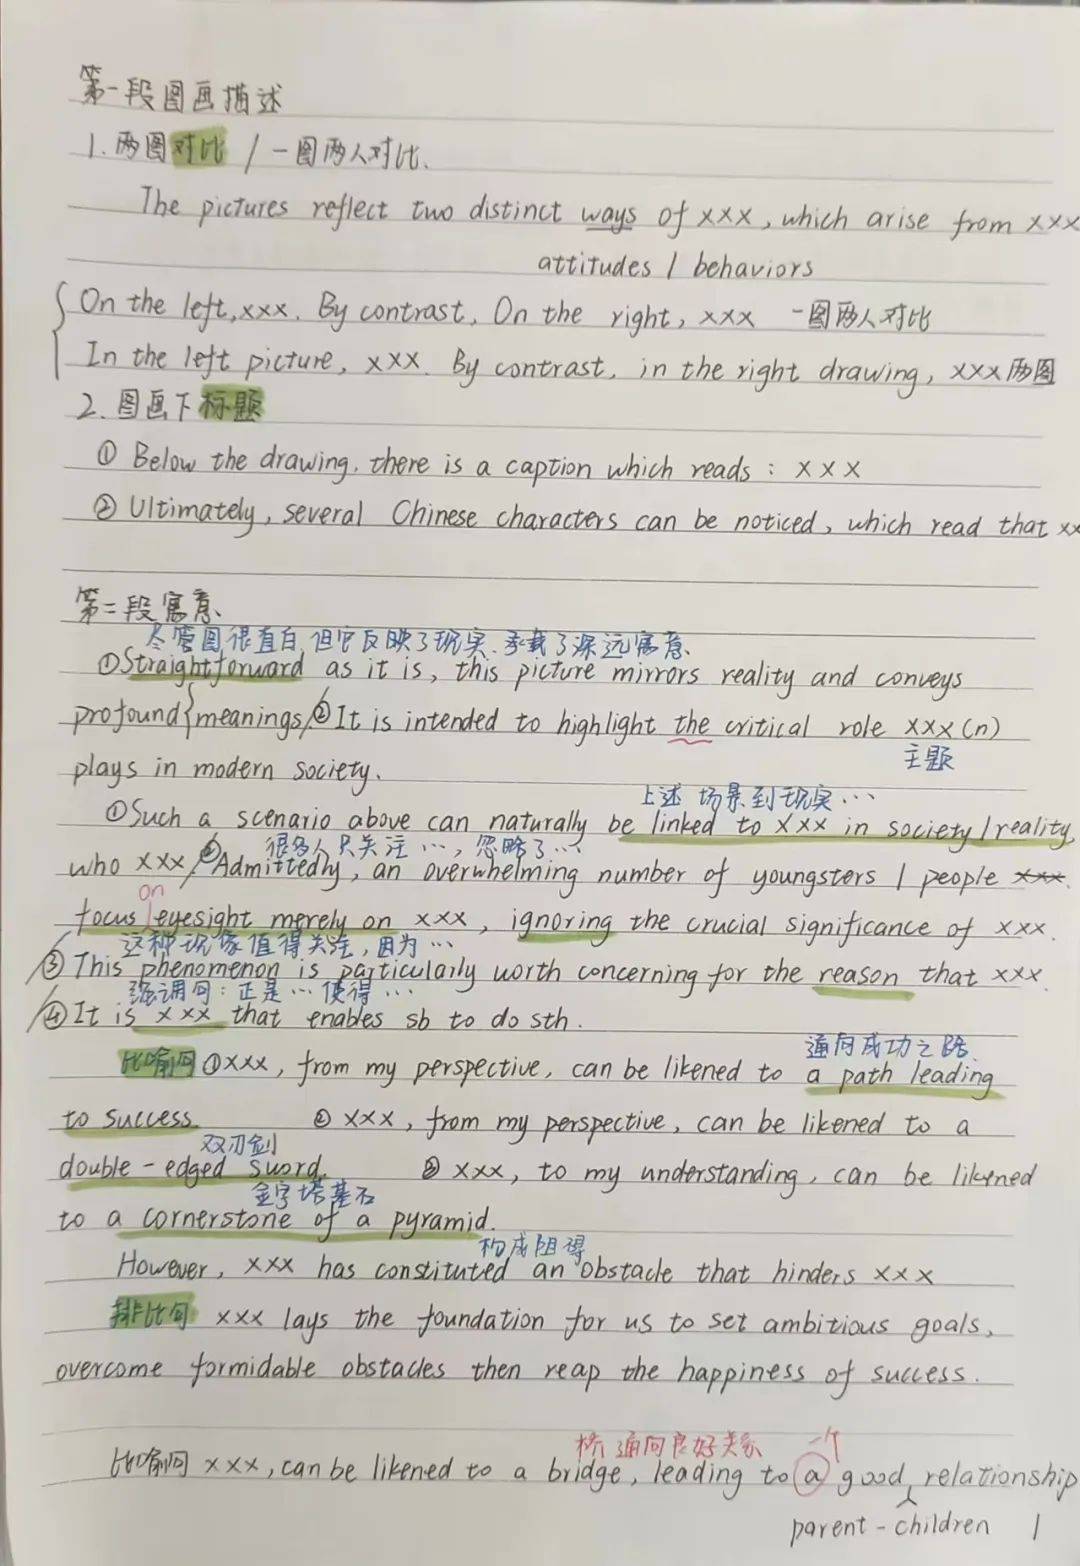 第一段图画描述
1. 两图对比 / 一图两人对比.
The pictures reflect two distinct ways of xxx, which arise from xxx
attitudes / behaviors
On the left, xxx. By contrast, On the right, xxx 一图两人对比
In the left picture, xxx. By contrast, in the right drawing, xxx 两图
2. 图画下标题
① Below the drawing, there is a caption which reads: xxx
② Ultimately, several Chinese characters can be noticed, which read that xx
第二段寓意
尽管图很直白,但它反映了现实、承载了深远寓意
①Straightforward as it is, this picture mirrors reality and conveys
profound meanings, ②It is intended to highlight the critical role xxx (n)
主题
plays in modern society.
上述 场景到现实…
①Such a scenario above can naturally be linked to xxx in society / reality,
很多人只关注…, 忽略了…
who xxx, ②Admittedly, an overwhelming number of youngsters / people xxx.
on
focus eyesight merely on xxx, ignoring the crucial significance of xxx.
这种现象值得关注, 因为…
③This phenomenon is particularly worth concerning for the reason that xxx.
强调句: 正是… 使得…
④It is xxx that enables sb to do sth.
通向成功之路.
比喻句 ①xxx, from my perspective, can be likened to a path leading
to success. ② xxx, from my perspective, can be likened to a
双刃剑
double-edged sword. ③ xxx, to my understanding, can be likened
金字塔基石
to a cornerstone of a pyramid.
构成阻碍
However, xxx has constituted an obstacle that hinders xxx
排比句 xxx lays the foundation for us to set ambitious goals,
overcome formidable obstacles then reap the happiness of success.
桥 通向良好关系 一个
比喻句 xxx, can be likened to a bridge, leading to a good relationship
parent-children 1